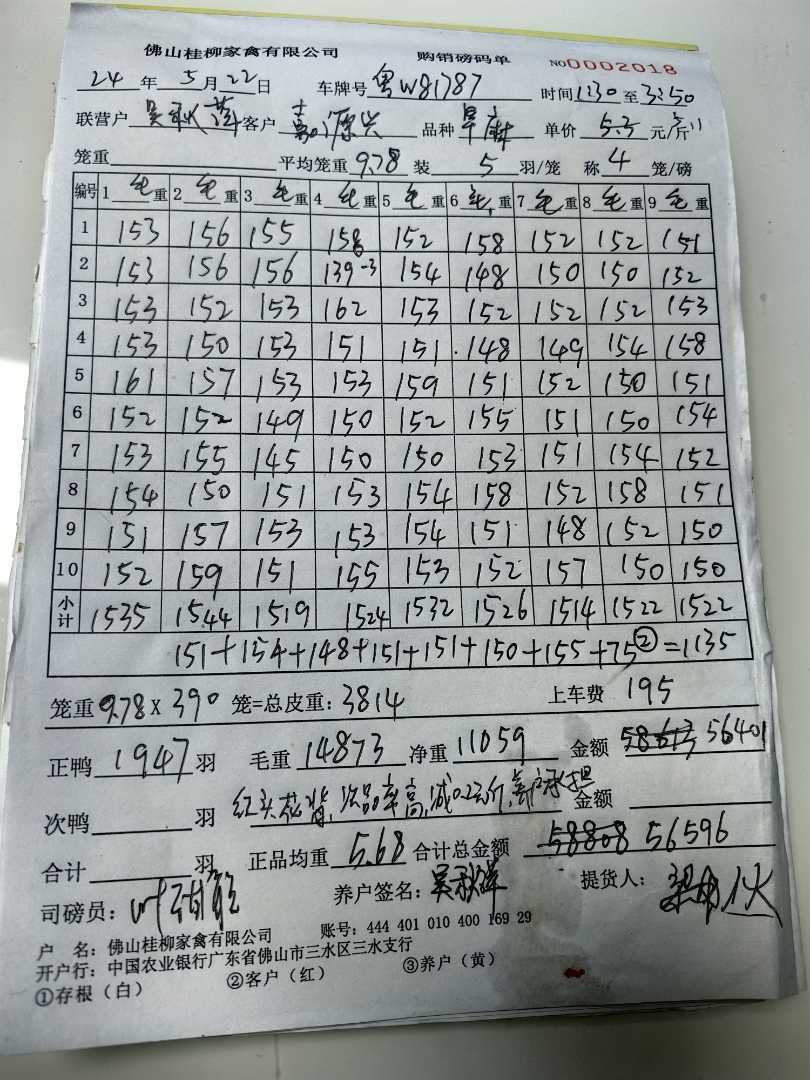 佛山桂柳家禽有限公司 购销磅码单 NO0002018
24年5月22日 车牌号 粤W81787 时间1:30至3:50
联营户 吴秋萍 客户 嘉源兴 品种 旱麻 单价 5.3 元/斤
笼重 平均笼重 9.78 装 5 羽/笼 称 4 笼/磅
编号 1 毛重 2 毛重 3 毛重 4 毛重 5 毛重 6 毛重 7 毛重 8 毛重 9 毛重
1 153 156 155 158 152 158 152 152 151
2 153 156 156 139-3 154 148 150 150 152
3 153 152 153 162 153 152 152 152 153
4 153 150 153 151 151 148 149 154 158
5 161 157 153 153 159 151 152 150 151
6 152 152 149 150 152 155 151 150 154
7 153 155 145 150 150 153 151 154 152
8 154 150 151 153 154 158 152 158 151
9 151 157 153 153 154 151 148 152 150
10 152 159 151 155 153 152 157 150 150
小计 1535 1544 1519 1524 1532 1526 1514 1522 1522
151+154+148+151+151+150+155+75②=1135
笼重 9.78 X 390 笼=总皮重：3814 上车费 195
正鸭 1947 羽 毛重 14873 净重 11059 金额 58613 56401
次鸭 羽 红头花背，次品率高，减0.2元/斤，养户承担 金额
合计 羽 正品均重 5.68 合计总金额 58808 56596
司磅员： 养户签名：吴秋萍 提货人：
户 名：佛山桂柳家禽有限公司 账号：444 401 010 400 169 29
开户行：中国农业银行广东省佛山市三水区三水支行
①存根（白） ②客户（红） ③养户（黄）